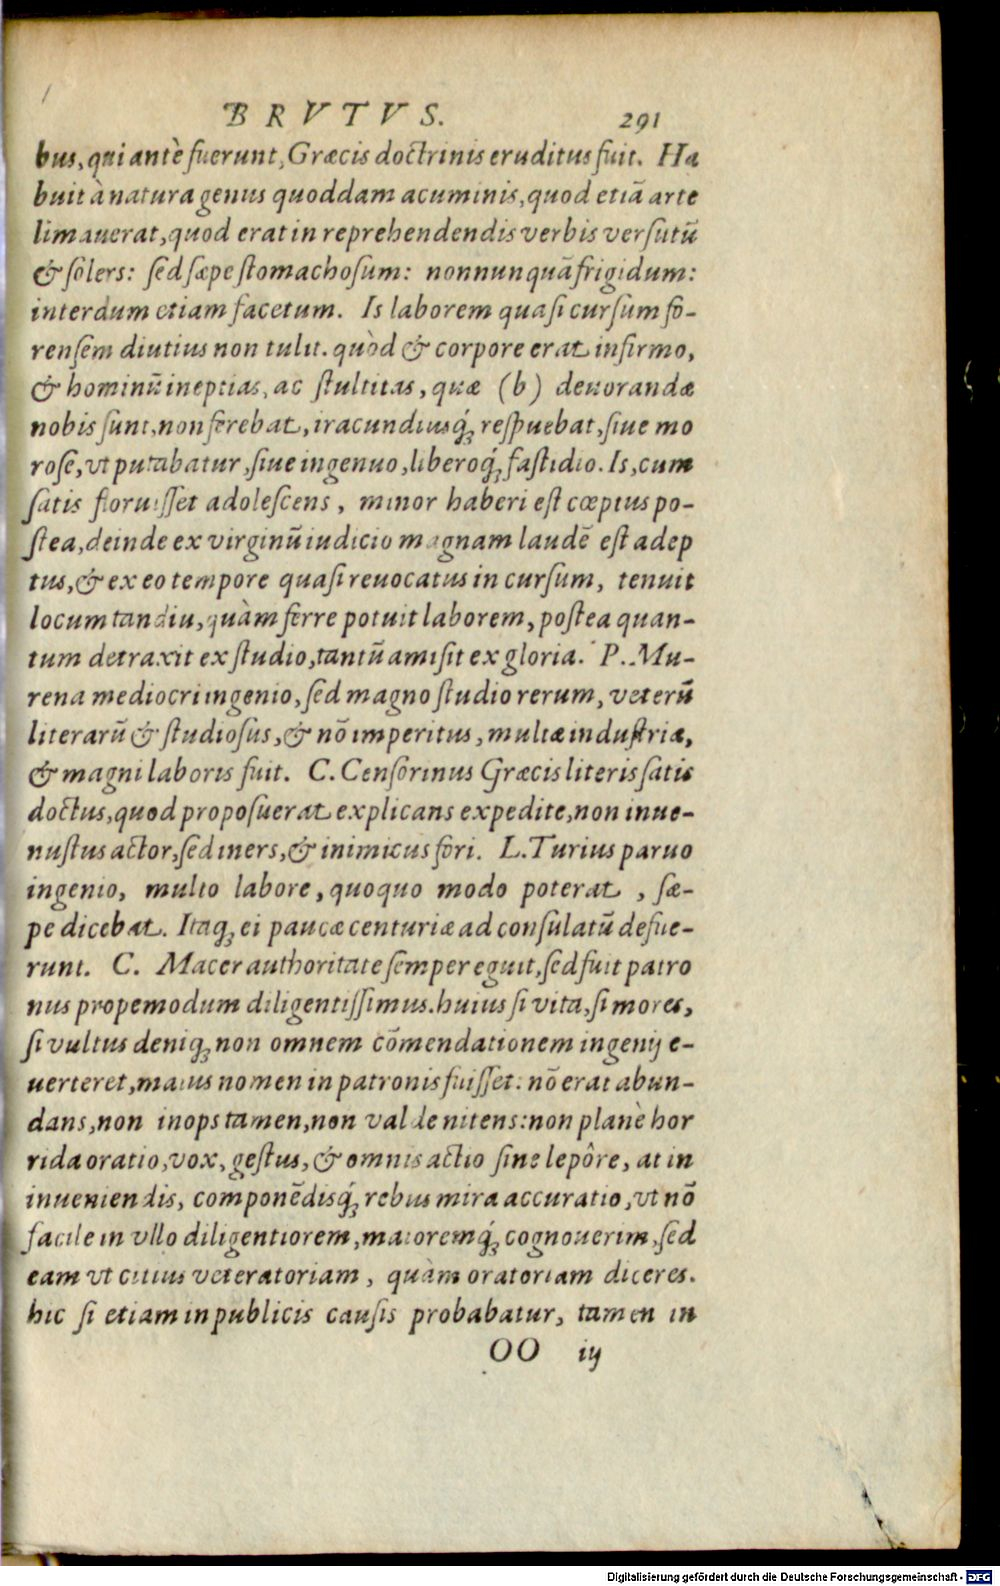 BRVTVS. 291
bus, qui antè fuerunt, Græcis doctrinis eruditus fuit. Ha
buit à natura genus quoddam acuminis, quod etiā arte
limauerat, quod erat in reprehendendis verbis versutū
& solers: sed sæpe stomachosum: nonnunquā frigidum:
interdum etiam facetum. Is laborem quasi cursum fo-
rensem diutius non tulit. quòd & corpore erat infirmo,
& hominū ineptias, ac stultitas, quæ (b) deuorandæ
nobis sunt, non ferebat, iracundiusq́; respuebat, siue mo
rose, vt putabatur, siue ingenuo, liberoq́; fastidio. Is, cum
satis floruisset adolescens, minor haberi est cœptus po-
stea, deinde ex virginū iudicio magnam laudē est adep
tus, & ex eo tempore quasi reuocatus in cursum, tenuit
locum tandiu, quàm ferre potuit laborem, postea quan-
tum detraxit ex studio, tantū amisit ex gloria. P. Mu-
rena mediocri ingenio, sed magno studio rerum, veterū
literarū & studiosus, & nō imperitus, multæ industriæ,
& magni laboris fuit. C. Censorinus Græcis literis satis
doctus, quod proposuerat explicans expedite, non inue-
nustus actor, sed iners, & inimicus fori. L. Turius paruo
ingenio, multo labore, quoquo modo poterat, sæ-
pe dicebat. Itaq; ei paucæ centuriæ ad consulatū defue-
runt. C. Macer authoritate semper eguit, sed fuit patro
nus propemodum diligentissimus. huius si vita, si mores,
si vultus deniq; non omnem cōmendationem ingenij e-
uerteret, maius nomen in patronis fuisset: nō erat abun-
dans, non inops tamen, non valde nitens: non planè hor
rida oratio, vox, gestus, & omnis actio sine lepôre, at in
inueniendis, componēdisq́; rebus mira accuratio, vt nō
facile in vllo diligentiorem, maioremq́; cognouerim, sed
eam vt citius veteratoriam, quàm oratoriam diceres.
hic si etiam in publicis causis probabatur, tamen in
OO iij
Digitalisierung gefördert durch die Deutsche Forschungsgemeinschaft - DFG